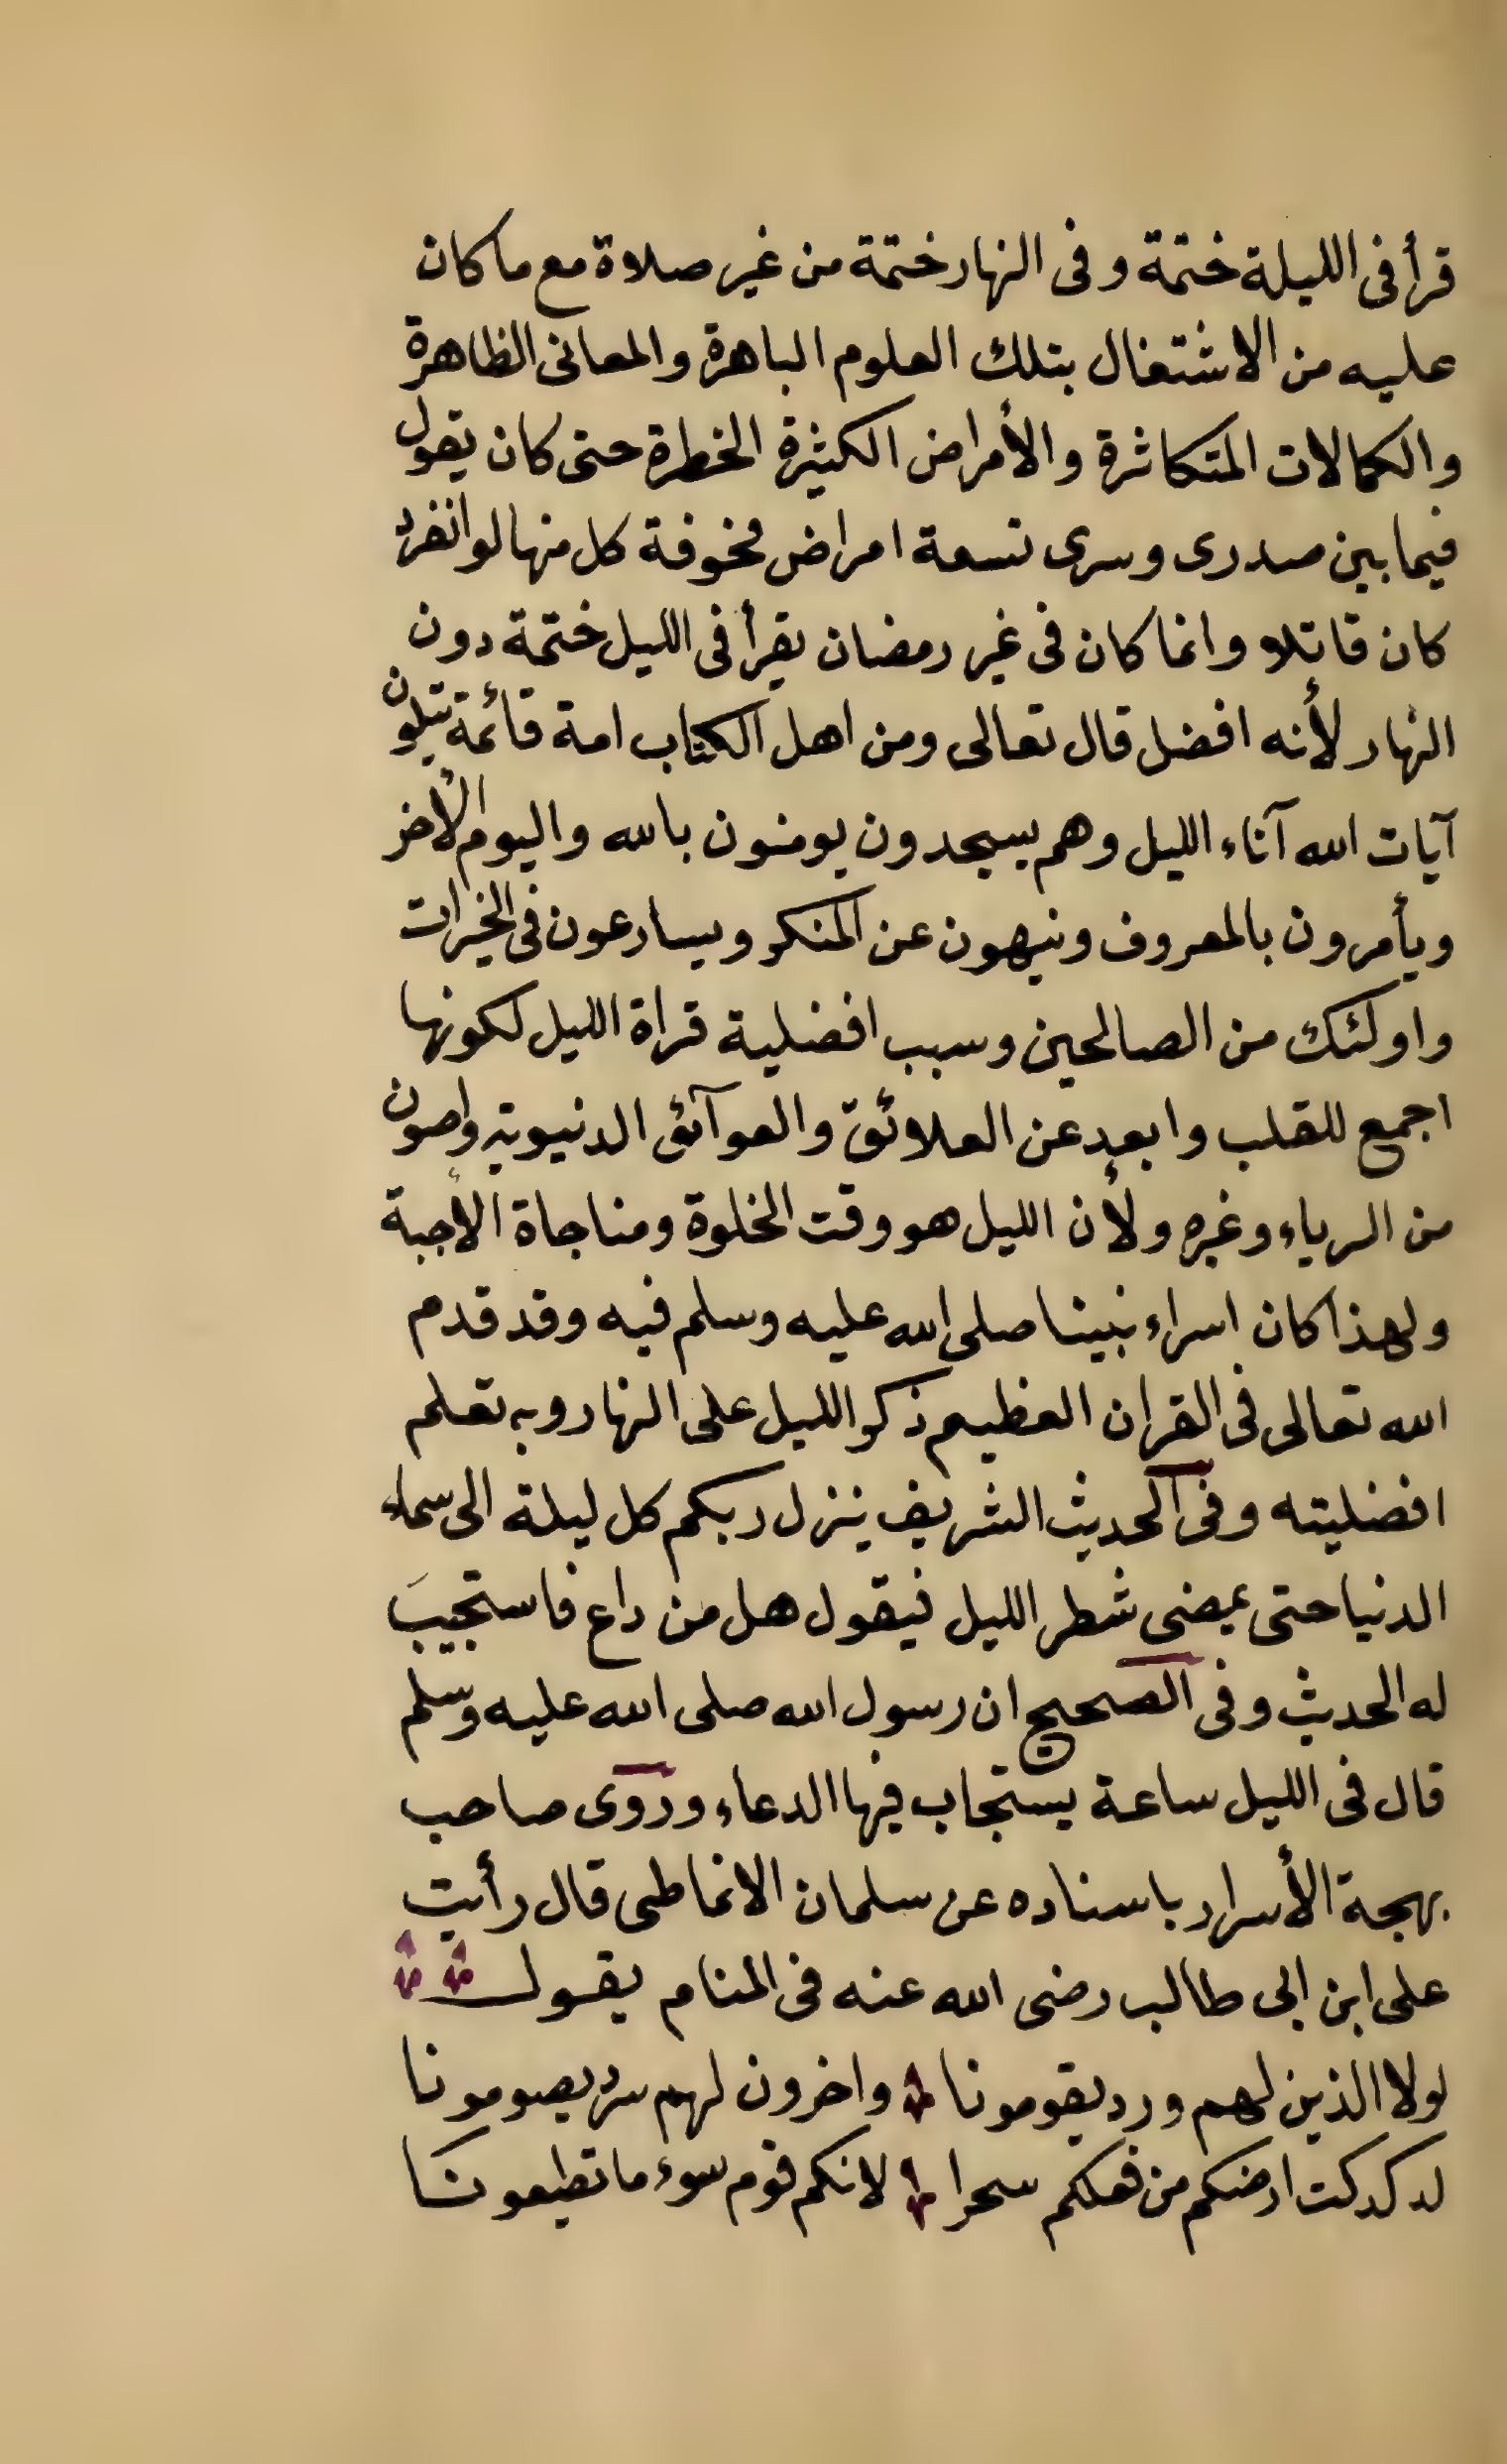 قرأ فى الليلة ختمة وفى النهار ختمة من غير صلاة مع ما كان
عليه من الاشتغال بتلك العلوم الباهرة والمعانى الظاهرة
والكمالات المتكاثرة والأمراض الكثيرة الخطرة حتى كان يقول
فيما بين صدرى وسرى تسعة امراض مخوفة كل منها لو انفرد
كان قاتلا وانما كان فى غير رمضان يقرأ فى الليل ختمة دون
النهار لأنه افضل قال تعالى ومن اهل الكتاب امة قائمة يتلون
آيات الله آناء الليل وهم يسجدون يومنون بالله واليوم الأخر
ويأمرون بالمعروف وينهون عن المنكر ويسارعون فى الخيرات
واولئك من الصالحين وسبب افضلية قراة الليل لكونها
اجمع للقلب وابعد عن العلائق والعوآئق الدنيوية واصون
من الرياء وغيره ولأن الليل هو وقت الخلوة ومناجاة الأحبة
ولهذا كان اسراء نبينا صلى الله عليه وسلم فيه وقد قدم
الله تعالى فى القران العظيم ذكر الليل على النهار وبه تعلم
افضليته وفى الحديث الشريف ينزل ربكم كل ليلة الى سماء
الدنيا حتى يمضى شطر الليل فيقول هل من داع فاستجيبَ
له الحديث وفى الصحيح ان رسول الله صلى الله عليه وسلم
قال فى الليل ساعة يستجاب فيها الدعاء وروى صاحب
بهجة الأسرار باسناده عن سلمان الانماطى قال رأيت
على ابن ابى طالب رضى الله عنه فى المنام يقول
لولا الذين لهم ورد يقومونا واخرون لهم سرد يصومونا
لدكدكت ارضكم من فعلكم سحرا لانكم قوم سوء ما تطيعونا